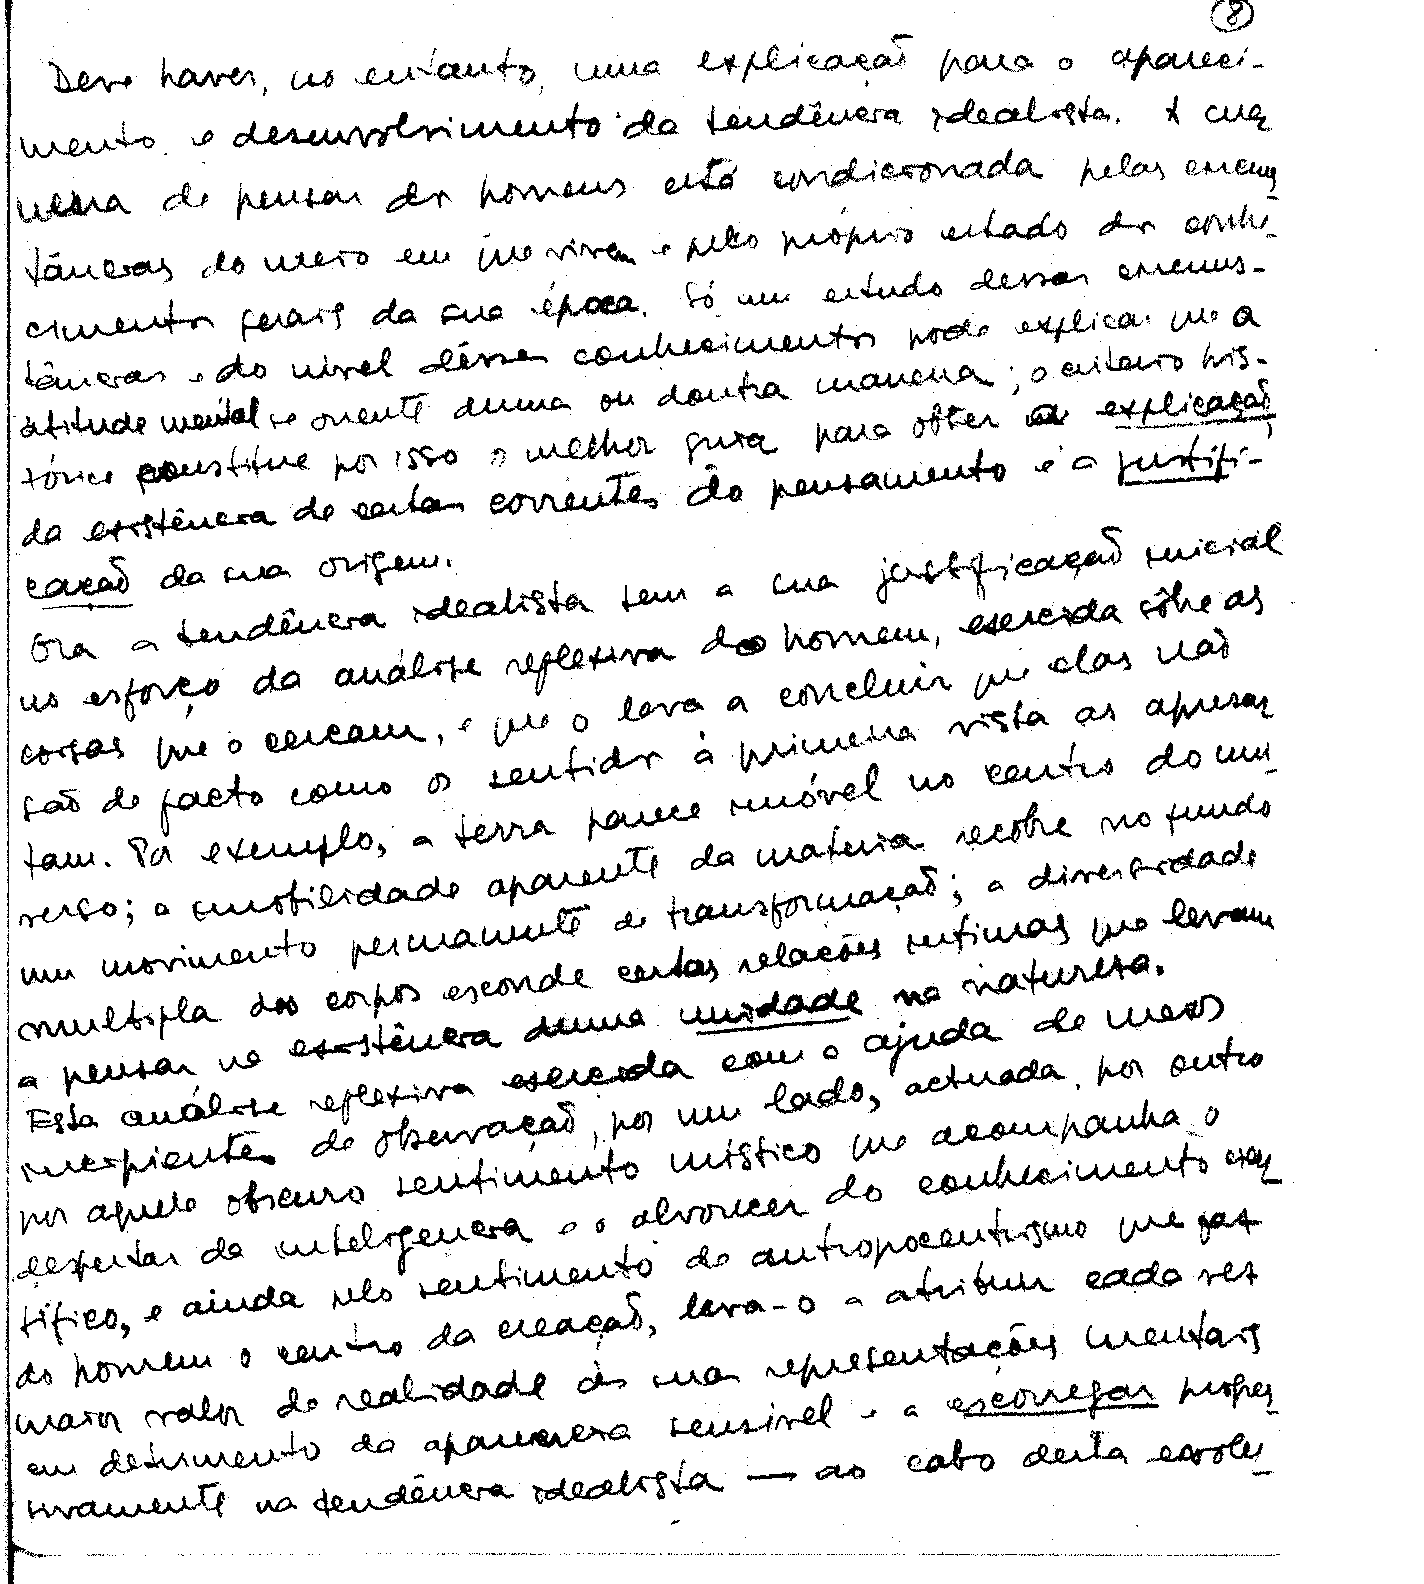 8
Deve haver, no entanto, uma explicação para o apareci-
mento e desenvolvimento da tendência idealista. A ma-
neira de pensar dos homens está condicionada pelas circuns-
tâncias do meio em que vivem e pelo próprio estado dos conhe-
cimentos gerais da sua época. Só um estudo dessas circuns-
tâncias e do nível dêsses conhecimentos pode explicar que a
atitude mental se oriente duma ou doutra maneira; o critério his-
tórico constitue por isso o melhor guia para obter a explicação
da existência de certas correntes do pensamento e a justifi-
cação da sua origem.
Ora a tendência idealista tem a sua justificação inicial
no esforço da análise reflexiva do homem, exercida sôbre as
coisas que o cercam, e que o leva a concluir que elas não
são de facto como os sentidos à primeira vista as apresen-
tam. Por exemplo, a terra parece imóvel no centro do uni-
verso; a imobilidade aparente da matéria recobre no fundo
um movimento permanente de transformação; a diversidade
multipla dos corpos esconde certas relações intimas que levam
a pensar na existência duma unidade na natureza.
Esta análise reflexiva exercida com a ajuda de meios
incipientes de observação, por um lado, actuada, por outro
por aquele obscuro sentimento místico que acompanha o
despertar da inteligência e o alvorecer do conhecimento cien-
tífico, e ainda pelo sentimento de antropocentrismo que faz
do homem o centro da creação, leva-o a atribuir cada vez
maior valor de realidade às suas representações mentais
em detrimento da aparência sensível e a escorregar progres-
sivamente na tendência idealista — ao cabo desta evolu-